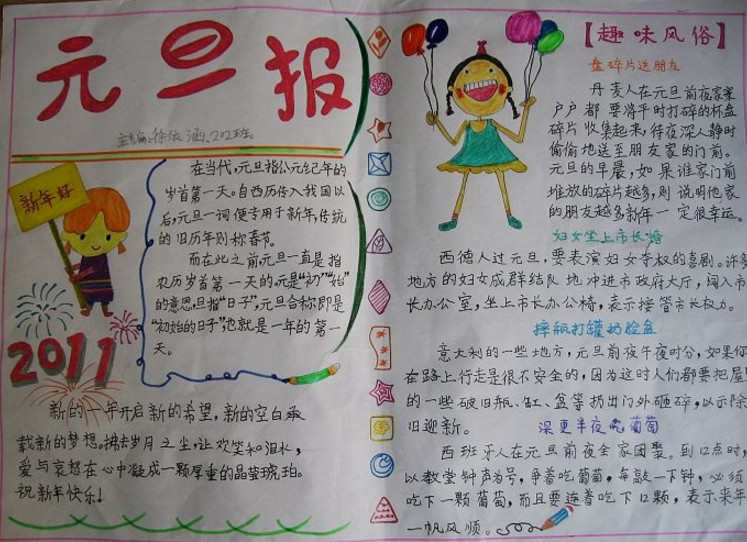 元旦报
主编:徐依涵、202班
新年好
在当代,元旦指公元纪年的
岁首第一天。自西历传入我国以
后,元旦一词便专用于新年,传统
的旧历年则称春节。
而在此之前,元旦一直是指
农历岁首第一天的。元是“初”“始”
的意思,旦指“日子”,元旦合称即是
“初始的日子”,也就是一年的第一
天。
2011
新的一年开启新的希望,新的空白承
载新的梦想。拂去岁月之尘,让欢笑和泪水,
爱与哀愁在心中凝成一颗厚重的晶莹琥珀。
祝新年快乐!
【趣味风俗】
盘碎片送朋友
丹麦人在元旦前夜家家
户户都要将平时打碎的杯盘
碎片收集起来,待夜深人静时
偷偷地送至朋友家的门前。
元旦的早晨,如果谁家门前
堆放的碎片越多,则说明他家
的朋友越多新年一定很幸运。
妇女坐上市长椅
西德人过元旦,要表演妇女夺权的喜剧。许多
地方的妇女成群结队地冲进市政府大厅,闯入市
长办公室,坐上市长办公椅,表示接管市长权力。
摔瓶打罐扔脸盆
意大利的一些地方,元旦前夜午夜时分,如果你
在路上行走是很不安全的,因为这时人们都要把屋
的一些破旧瓶、缸、盆等扔出门外砸碎,以示除
旧迎新。
深更半夜吃葡萄
西班牙人在元旦前夜全家团聚。到12点时,
以教堂钟声为号,争着吃葡萄,每敲一下钟,必须
吃下一颗葡萄,而且要连着吃下12颗,表示来年
一帆风顺。